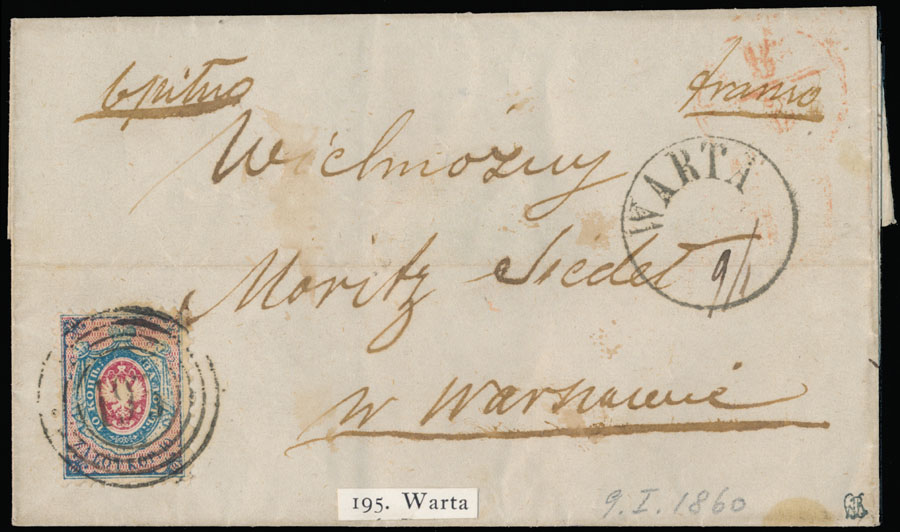 franco
Wielmożny
WARTA
9/1
Moritz Siedel
w Warszawie
195. Warta
9.I.1860